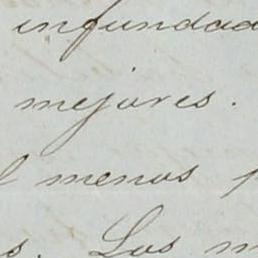 infundad
mejores.
menos
s. Los m